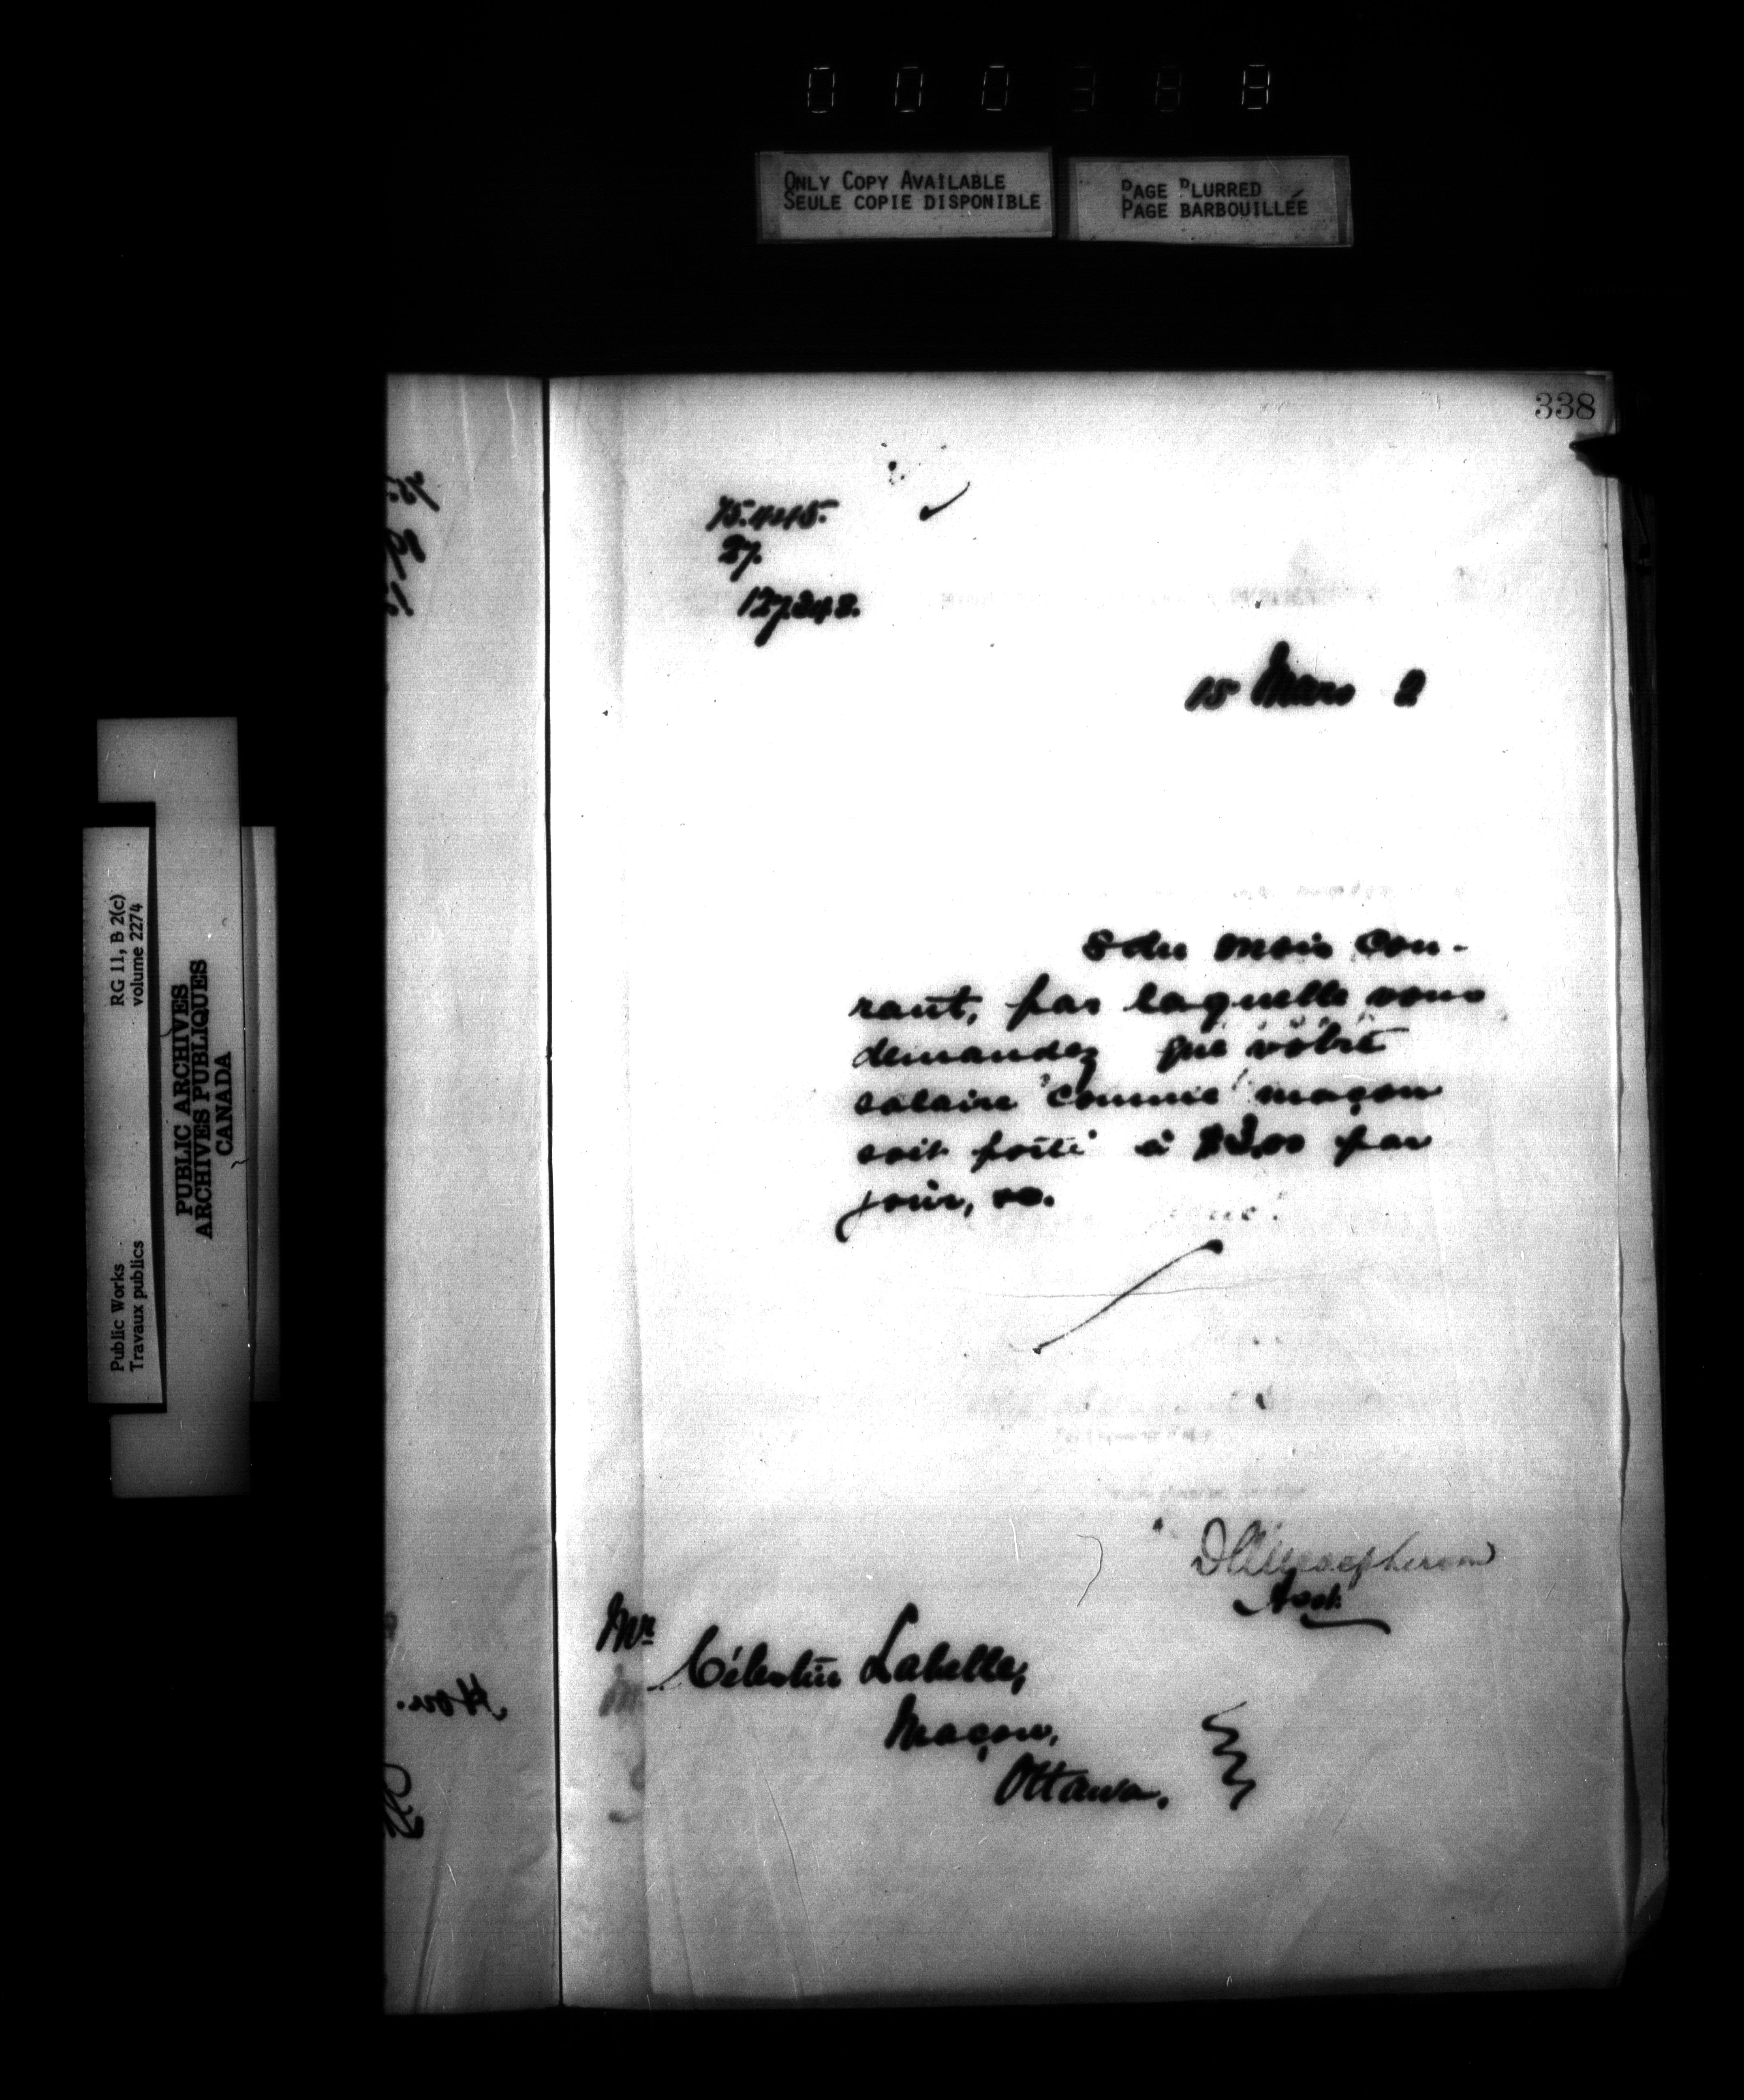 ONLY COPY AVAILABLE
SEULE COPIE DISPONIBLE
PAGE BLURRED
PAGE BARBOUILLÉE
338
75.445.
27.
127.348.
15 Mars 2
8 du mois cou-
rant, par laquelle vous
demandez que votre
salaire comme maçon
soit porté à $3.00 par
jour, &c.
Asst.
Mr
Célestin Labelle,
Maçon,
Ottawa.
Hon.
RG 11, B 2(c)
volume 2274
Public Works
Travaux publics
PUBLIC ARCHIVES
ARCHIVES PUBLIQUES
CANADA